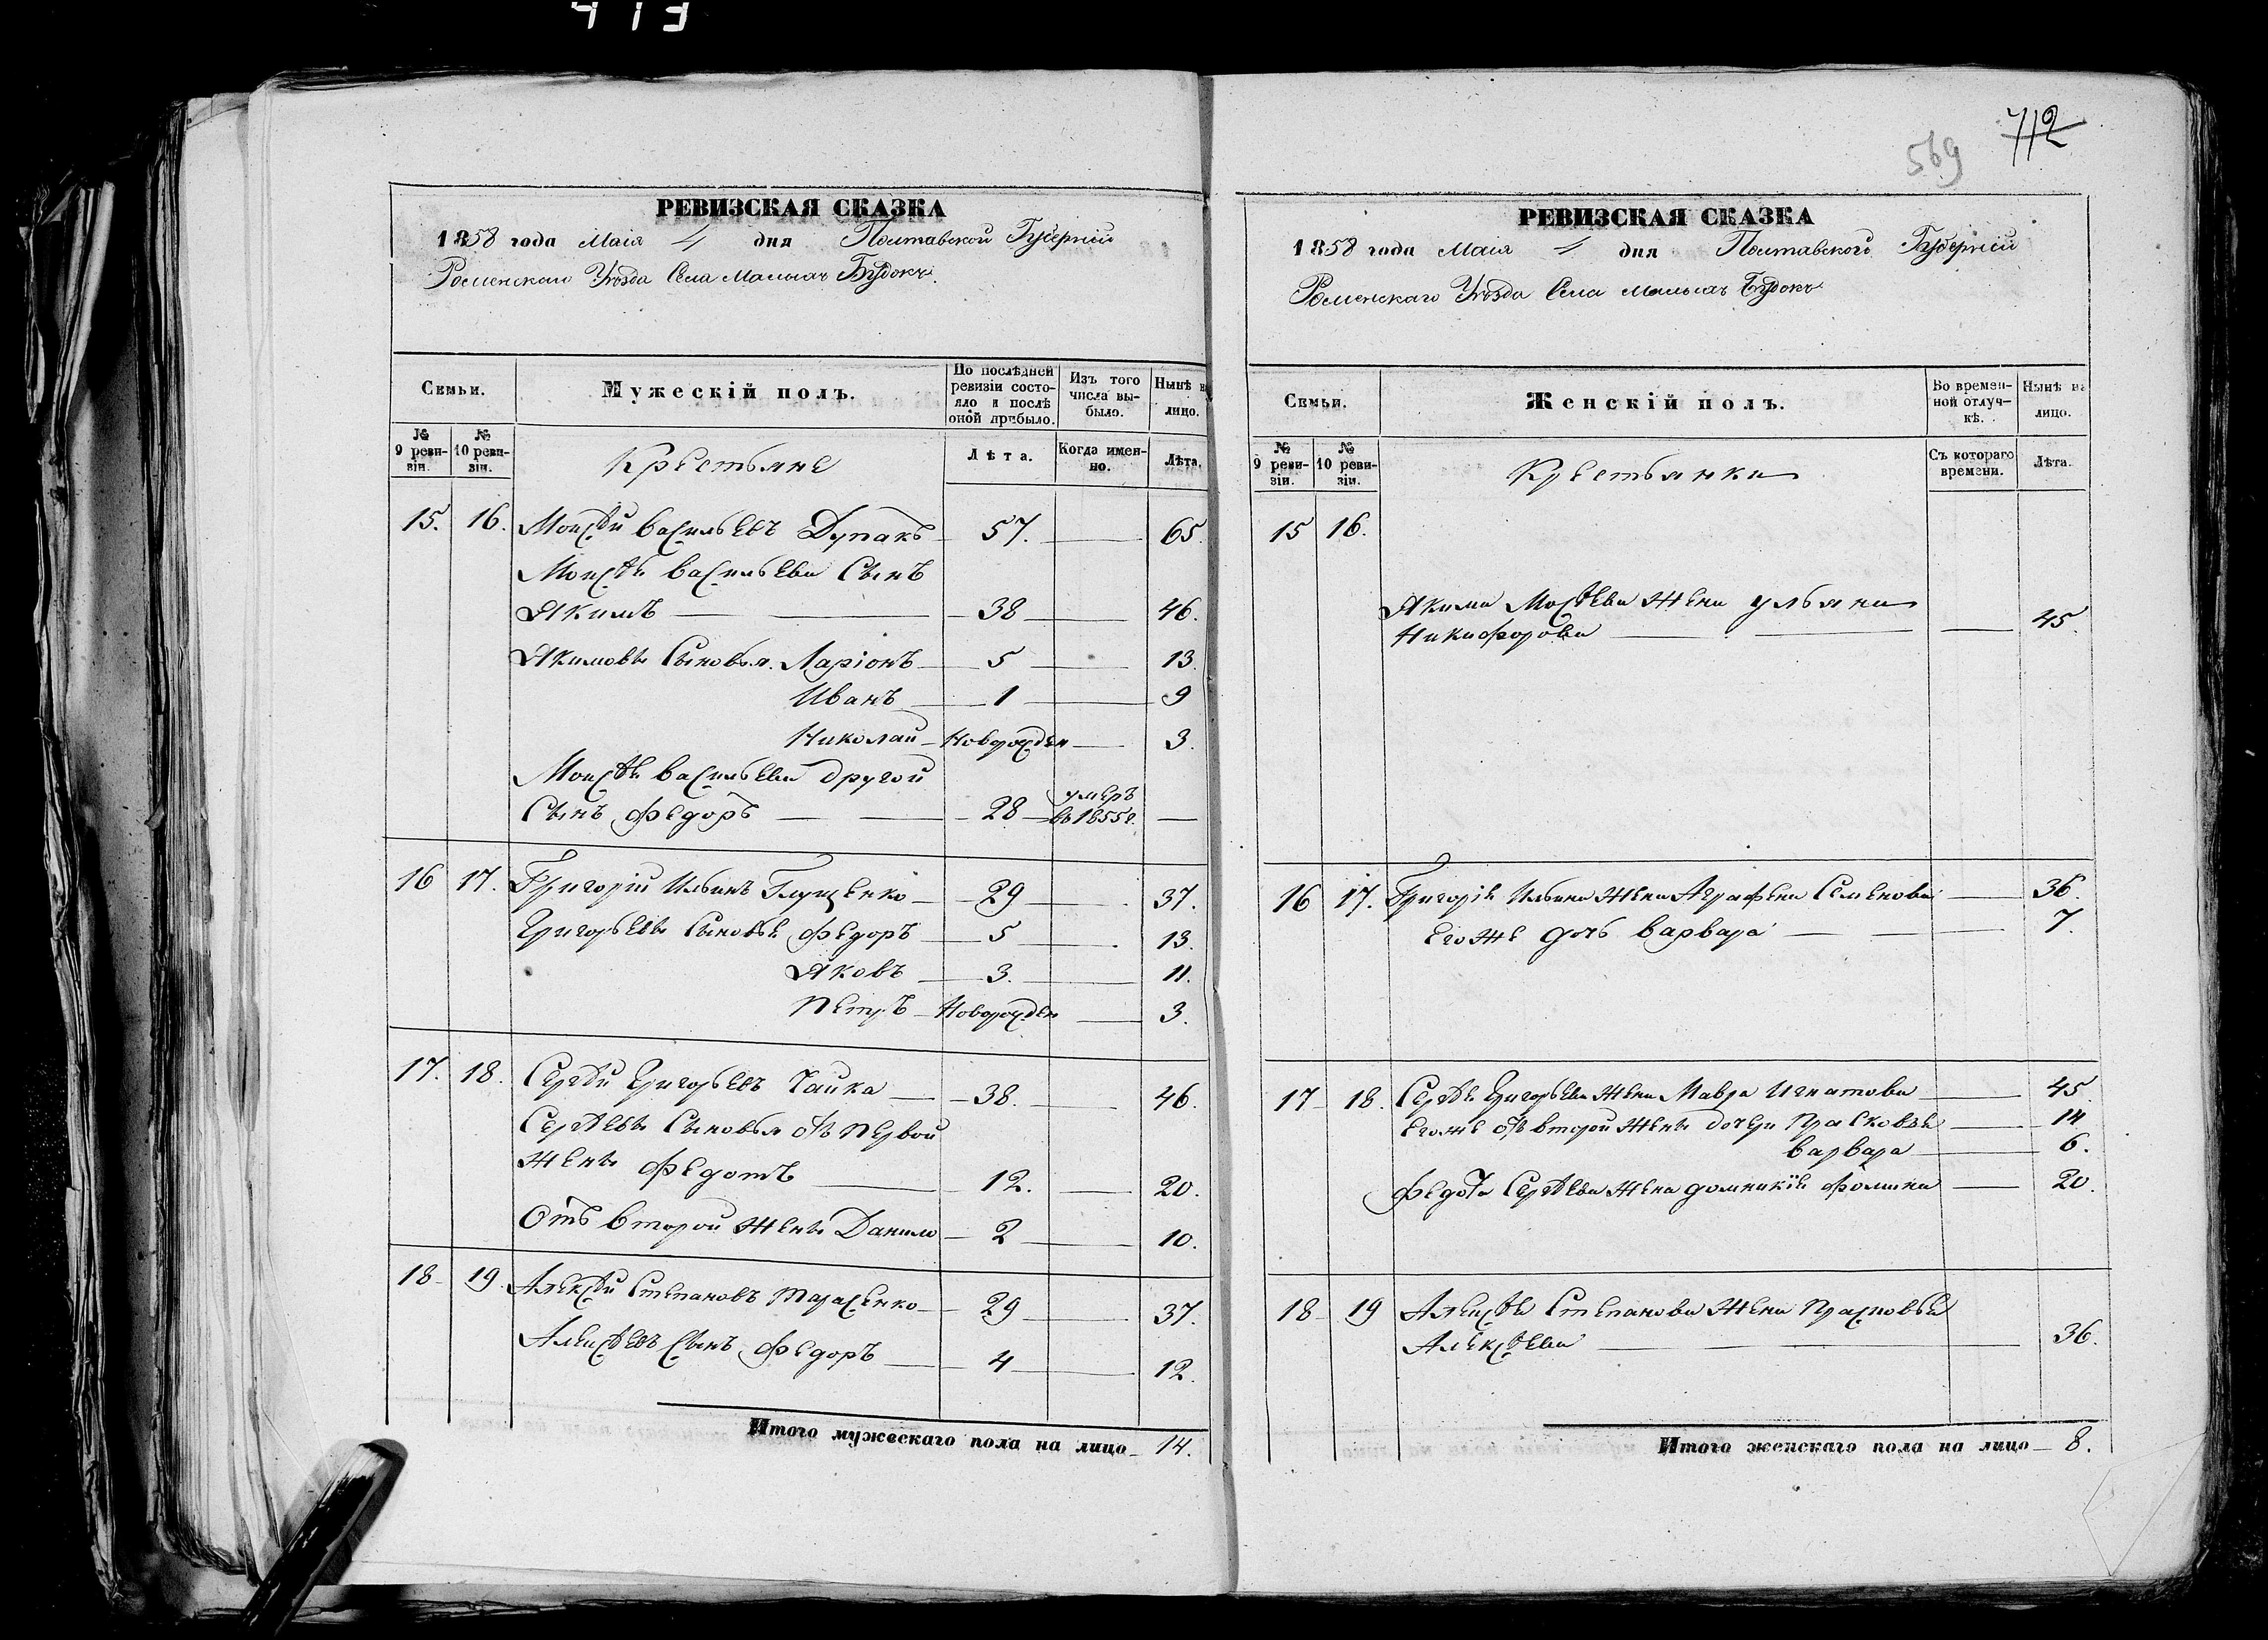 413
РЕВИЗСКАЯ СКАЗКА
1858 года Маія 4 дня Полтавской Губерніи
Роменскаго Уѣзда Села Малыхъ Будокъ.
Семьи.
Мужескій полъ.
По послѣдней ревизіи состояло и послѣ оной прибыло.
Изъ того числа выбыло.
Нынѣ на лицо.
№ 9 ревизіи.
№ 10 ревизіи.
Крестьяне
Лѣта.
Когда именно.
Лѣта.
15. 16. Моисѣй Васильевъ Дупакъ 57. 65.
Моисѣя Васильева Сынъ
Якимъ 38 46.
Якимовы Сыновья. Ларіонъ 5 13.
Иванъ 1 9
Николай Новорожден 3.
Моисѣя Васильева другой
Сынъ Федоръ 28 умеръ въ 1855 г.
16 17. Григорій Ильинъ Глущенко 29 37.
Григорьевы Сыновья Федоръ 5 13.
Яковъ 3. 11.
Петръ Новорожден 3.
17. 18. Сергѣй Григорьевъ Чайка 38. 46.
Сергѣевы Сыновья отъ первой
жены Федотъ 12. 20.
Отъ второй жены Данило 2 10.
18 19. Алексѣй Степановъ Тарасенко 29 37.
Алексѣевъ Сынъ Федоръ 4 12.
Итого мужескаго пола на лицо 14.
569
712
РЕВИЗСКАЯ СКАЗКА
1858 года Маія 4 дня Полтавского Губерніи
Роменскаго Уѣзда Села Малыхъ Будокъ
Семьи.
Женскій полъ.
Во временной отлучкѣ.
Нынѣ на лицо.
№ 9 ревизіи.
№ 10 ревизіи.
Крестьянки
Съ котораго времени.
Лѣта.
15 16.
Якима Мосѣева жена Ульяна
Никифорова 45.
16 17. Григорія Ильина жена Аграфена Семенова 36.
Его же дочь Варвара 7.
17 18. Сергѣя Григорьева жена Мавра Игнатова 45.
Его же отъ второй жены дочери Прасковья 14
Варвара 6.
Федота Сергѣева жена Домникія Фомина 20.
18 19 Алексѣя Степанова жена Прасковья
Алексѣева 36.
Итого женскаго пола на лицо 8.